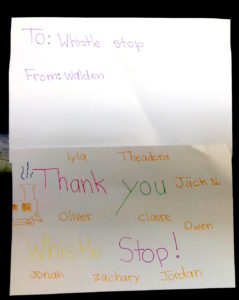 To: Whistle stop
From: Walden
lyla Theadora
Thank you Jack N.
Oliver Claire
Owen
Whistle Stop!
Jonah Zachary Jordan